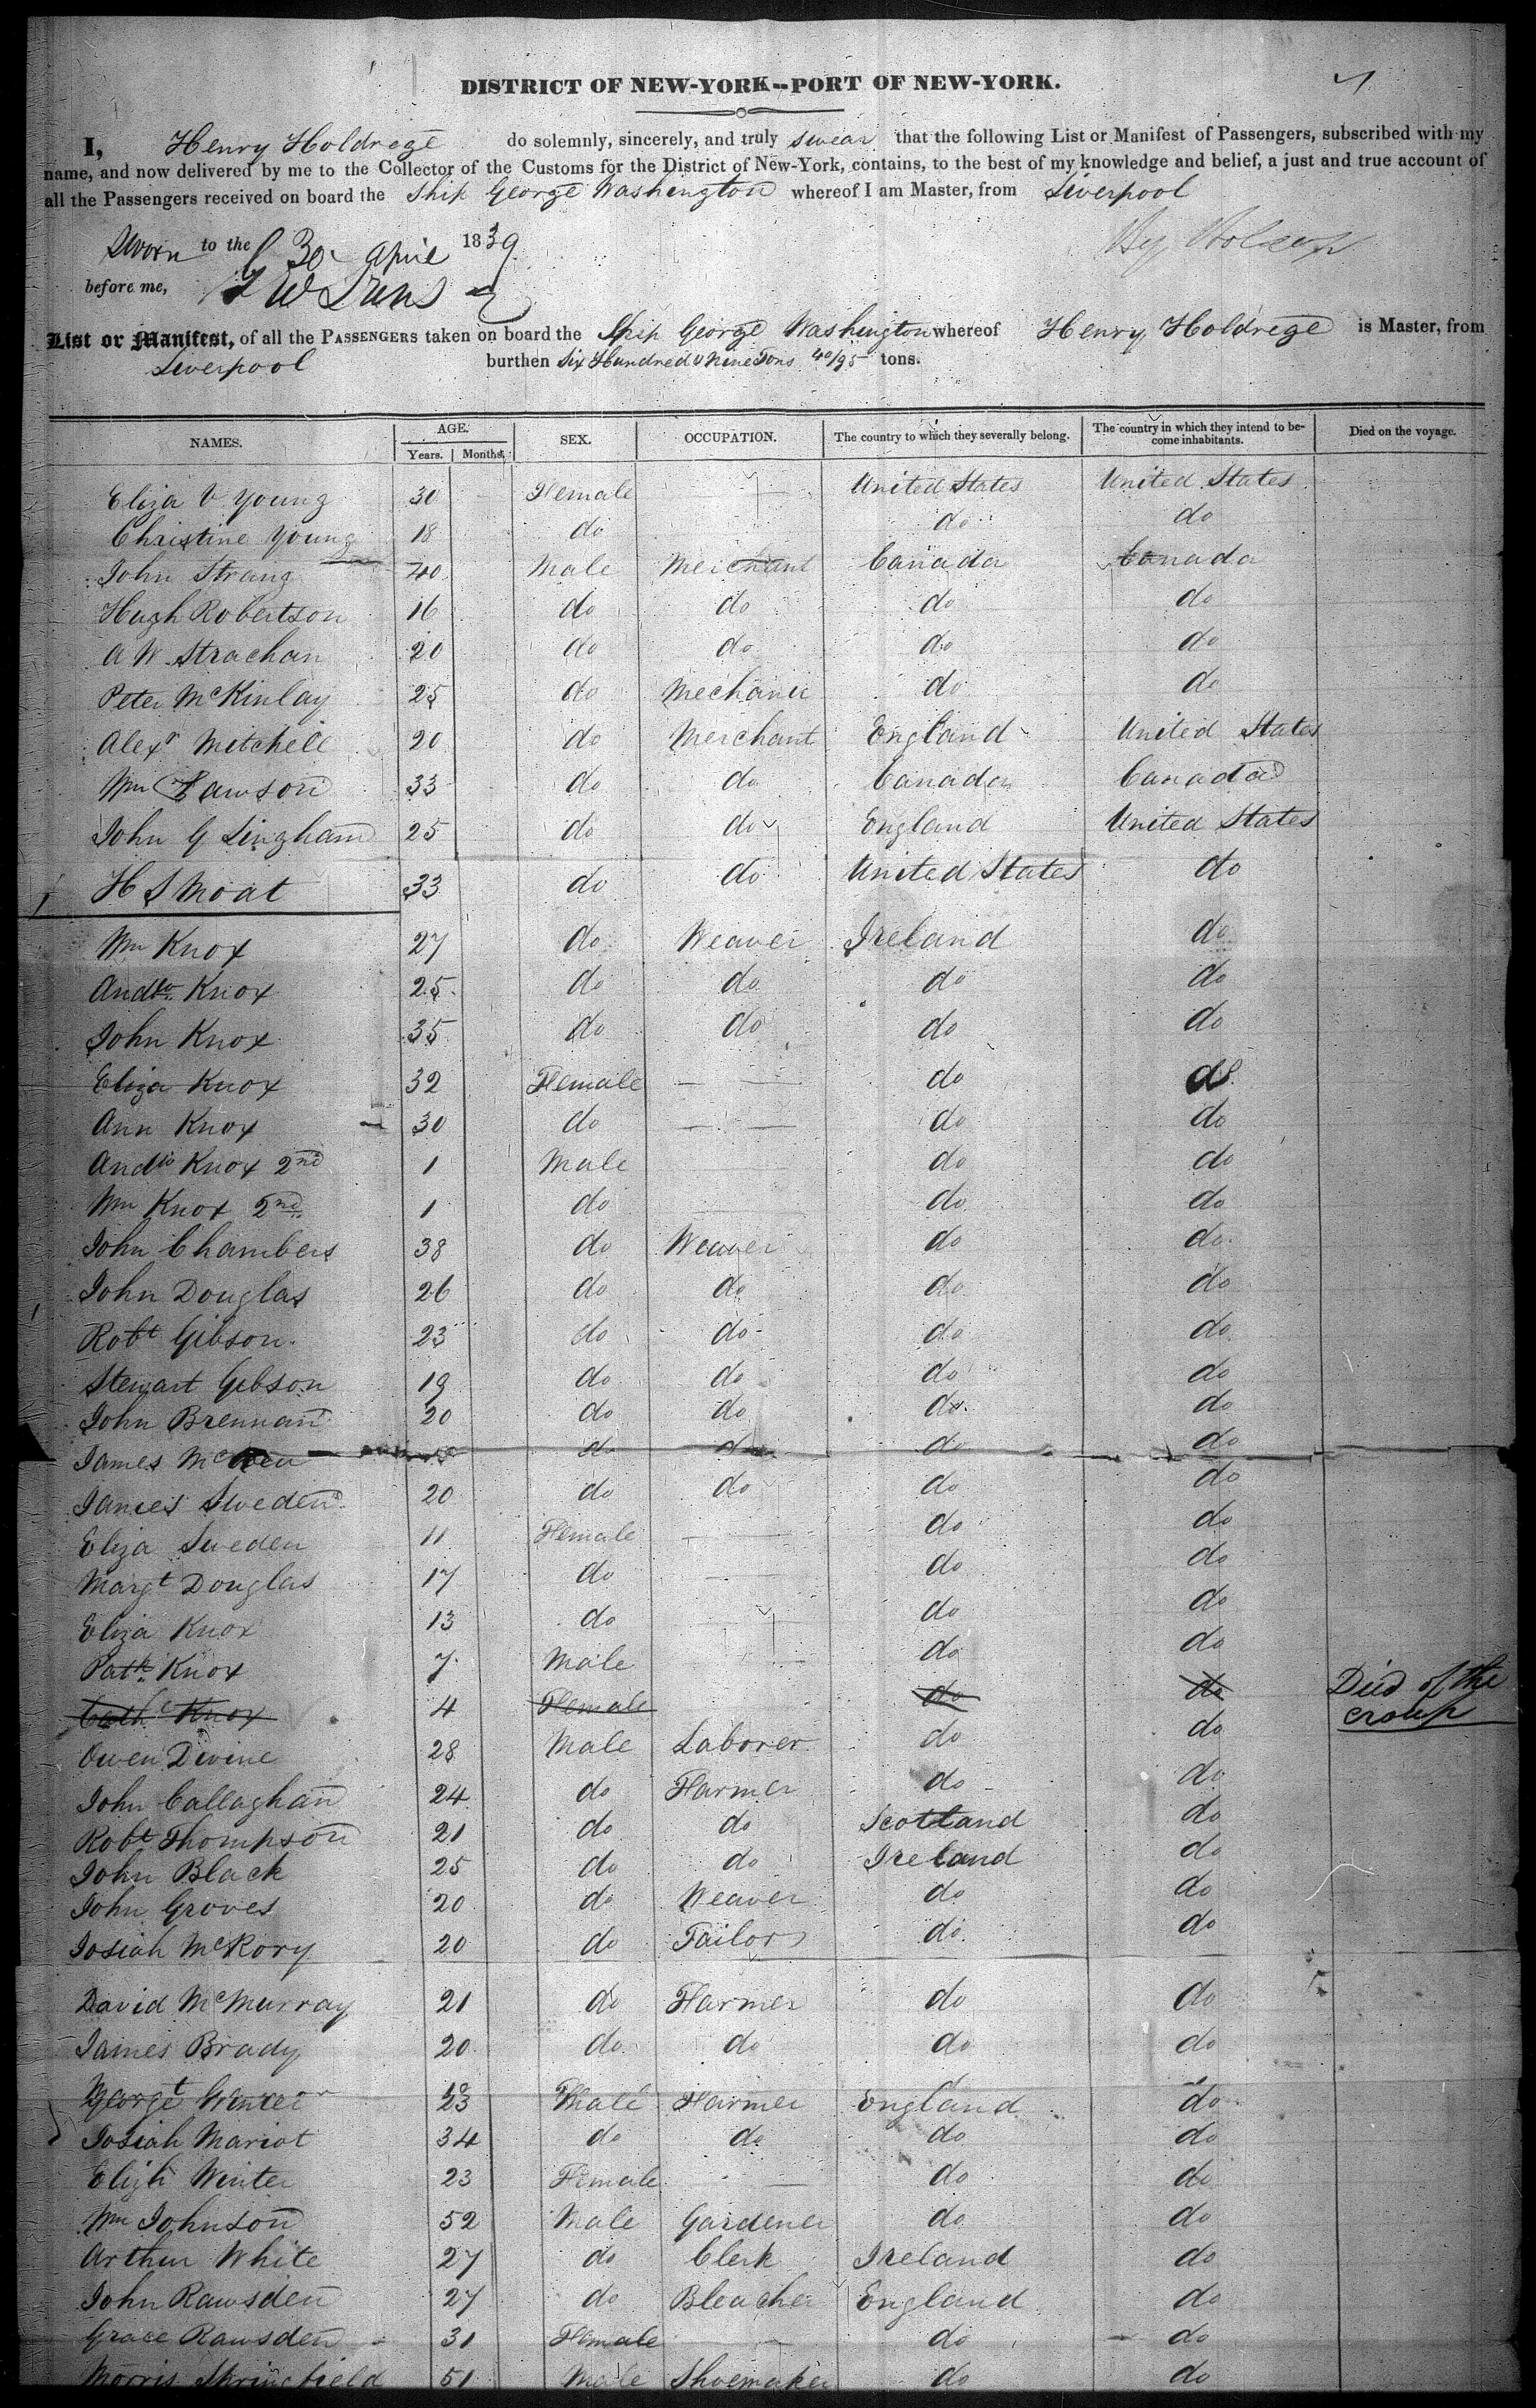 DISTRICT OF NEW-YORK--PORT OF NEW-YORK.
I, Henry Holdrege do solemnly, sincerely, and truly swear that the following List or Manifest of Passengers, subscribed with my
name, and now delivered by me to the Collector of the Customs for the District of New-York, contains, to the best of my knowledge and belief, a just and true account of
all the Passengers received on board the Ship George Washington whereof I am Master, from Liverpool
Sworn to the 30 April 1839
before me,
List or Manifest, of all the PASSENGERS taken on board the Ship George Washington whereof Henry Holdrege is Master, from
Liverpool burthen Six Hundred & Nine Tons 40/95 tons.
NAMES. AGE. Years. Months. SEX. OCCUPATION. The country to which they severally belong. The country in which they intend to become inhabitants. Died on the voyage.
Eliza V Young 30 Female United States United States
Christine Young 18 do do do
John Strang 40 Male Merchant Canada Canada
Hugh Robertson 16 do do do do
A W Strachan 20 do do do do
Peter McKinlay 25 do Mechanic do do
Alexr Mitchell 20 do Merchant England United States
Wm Lawson 33 do do Canada Canada
John G Lingham 25 do do England United States
H S Moat 33 do do United States do
Wm Knox 27 do Weaver Ireland do
Andw Knox 25 do do do do
John Knox 35 do do do do
Eliza Knox 32 Female do do
Ann Knox 30 do do do
Andw Knox 2nd 1 Male do do
Wm Knox 2nd 1 do do do
John Chambers 38 do Weaver do do
John Douglas 26 do do do do
Robt Gibson 23 do do do do
Stewart Gibson 19 do do do do
John Brennan 20 do do do do
James do do do do
James Sweden 20 do do do do
Eliza Sweden 11 Female do do
Margt Douglas 17 do do do
Eliza Knox 13 do do do
Patk Knox 7 Male do do
Cathe Knox 4 Female do do Died of the
croup
Owen Divine 28 Male Laborer do do
John Callaghan 24 do Farmer do do
Robt Thompson 21 do do Scotland do
John Black 25 do do Ireland do
John Groves 20 do Weaver do do
Josiah McRory 20 do Tailor do do
David McMurray 21 do Farmer do do
James Brady 20 do do do do
George 23 Male Farmer England do
Josiah Mariot 34 do do do do
Elizh Winter 23 Female do do
Wm Johnson 52 Male Gardener do do
Arthur White 27 do Clerk Ireland do
John Rawsden 27 do Bleacher England do
Grace Rawsden 31 Female do do
Morris Springfield 51 Male Shoemaker do do